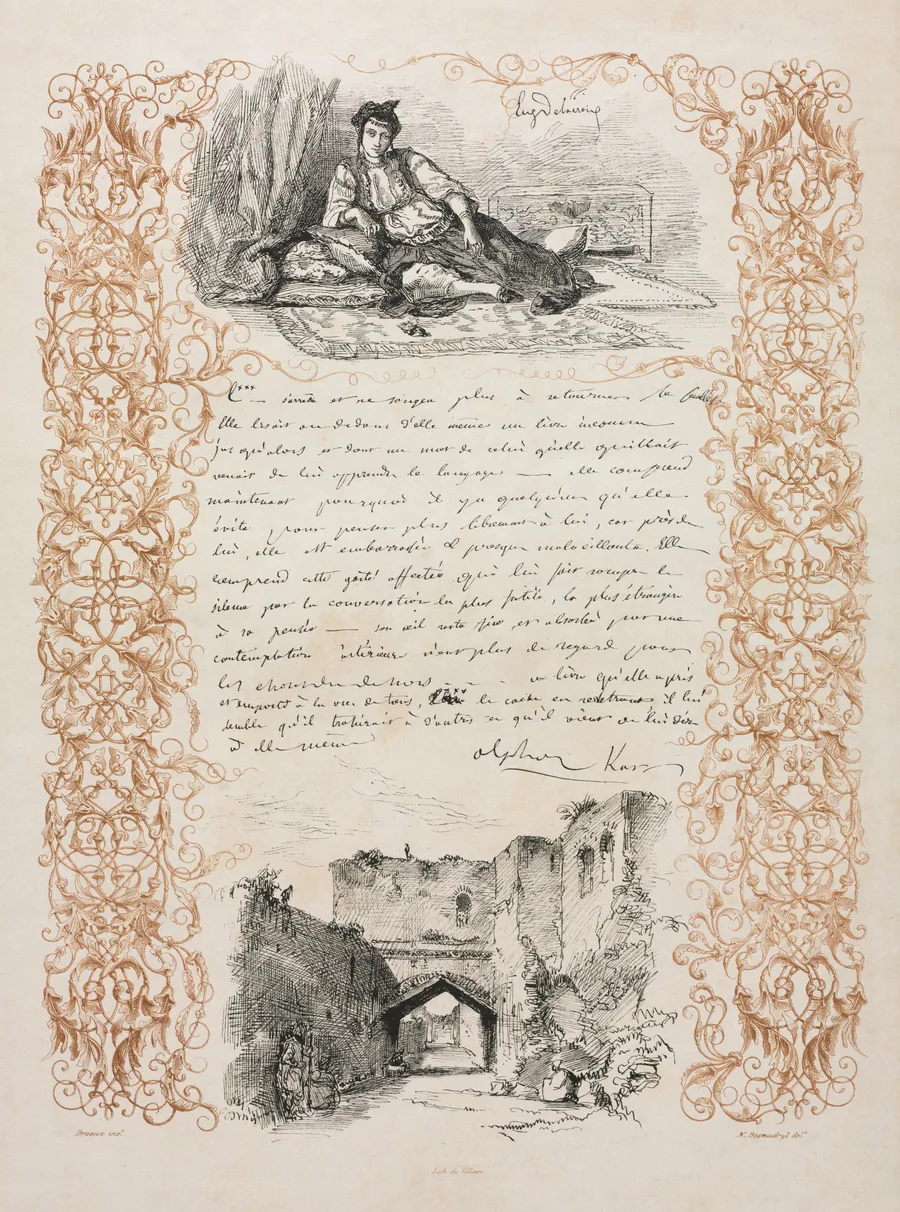 Eug Delacroix
C*** — s'arrête et ne songea plus à retourner le feuillet
Elle lisait au dedans d'elle même un livre inconnu
jusqu'alors et dont un mot de celui qu'elle quittait
venait de lui apprendre le langage — elle comprend
maintenant pourquoi il y a quelqu'un qu'elle
évite pour penser plus librement à lui, car près de
lui, elle est embarrassée & presque malveillante. Elle
comprend cette gaité affectée qui lui fait rompre le
silence par la conversation la plus futile, la plus étrangère
à sa pensée — son œil reste fixe et absorbé par une
contemplation intérieure n'ont plus de regard pour
les choses du dehors — - ce livre qu'elle a pris
et emporté à la vue de tous, le cache en rentrant il lui
semble qu'il trahirait à d'autres ce qu'il vient de lui dire
à elle même
Alphonse Karr
Drouux inv.t
N. Desmadryl del.t
Lith de Villain